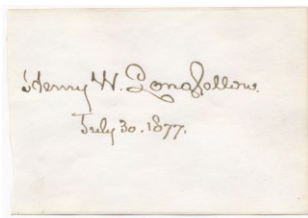 Henry W. Longfellow.
July 30. 1877.